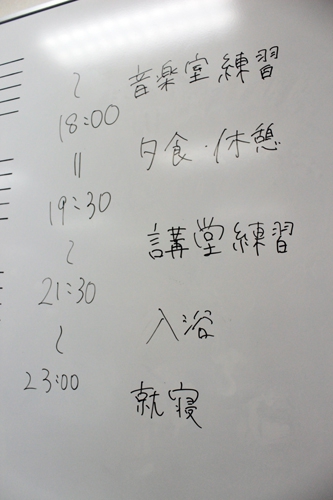 〜 音楽堂練習
18:00
|| 夕食・休憩
19:30
〜 講堂練習
21:30
〜 入浴
23:00
就寝